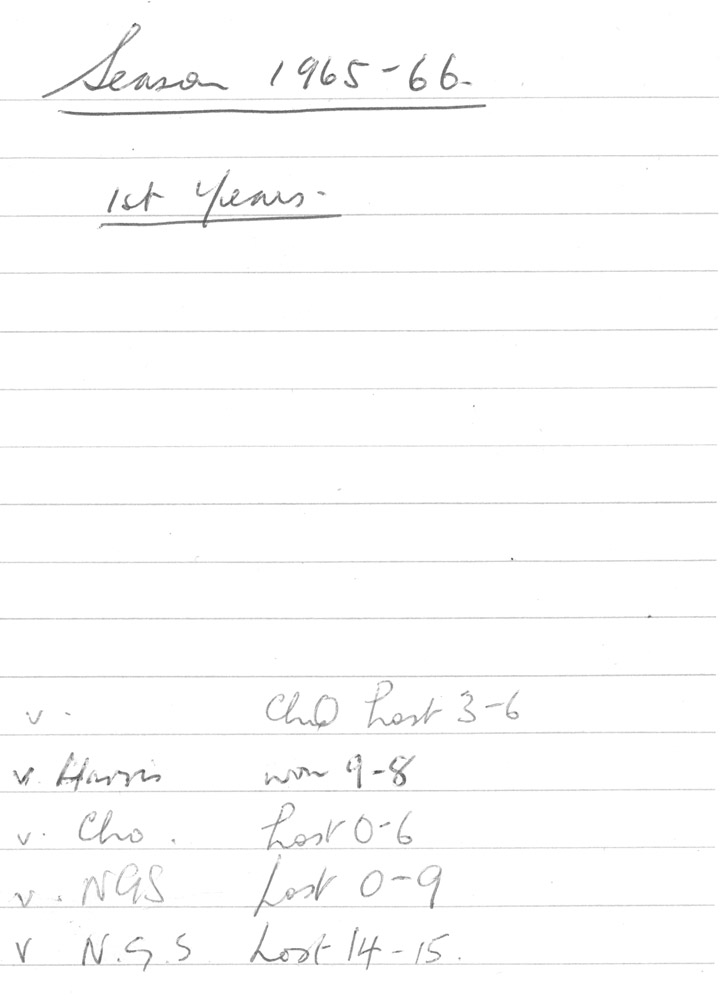 Season 1965-66.
1st Years.
v. Lost 3-6
v. Harris won 9-8
v. Cho. Lost 0-6
v. NGS Lost 0-9
v N.G.S Lost 14-15.